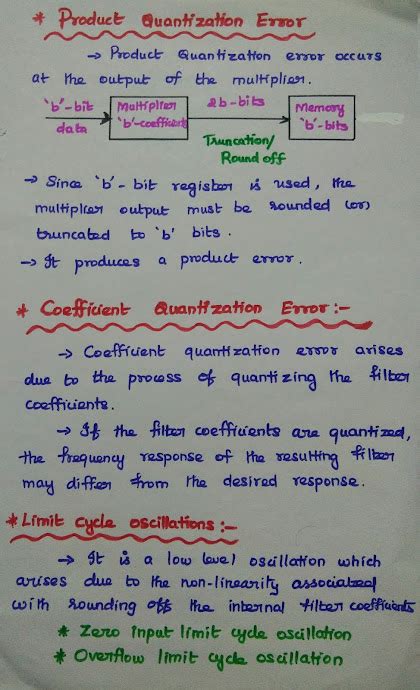 * Product Quantization Error
→ Product Quantization error occurs
at the output of the multiplier.
'b'-bit
data
Multiplier
'b'-coefficients
2b-bits
Truncation/
Round off
Memory
'b'-bits
→ Since 'b'-bit register is used, the
multiplier output must be rounded (or)
truncated to 'b' bits.
→ It produces a product error.
* Coefficient Quantization Error:-
→ Coefficient quantization error arises
due to the process of quantizing the filter
coefficients.
→ If the filter coefficients are quantized,
the frequency response of the resulting filter
may differ from the desired response.
* Limit cycle oscillations:-
→ It is a low level oscillation which
arises due to the non-linearity associated
with rounding off the internal filter coefficients
* Zero input limit cycle oscillation
* Overflow limit cycle oscillation